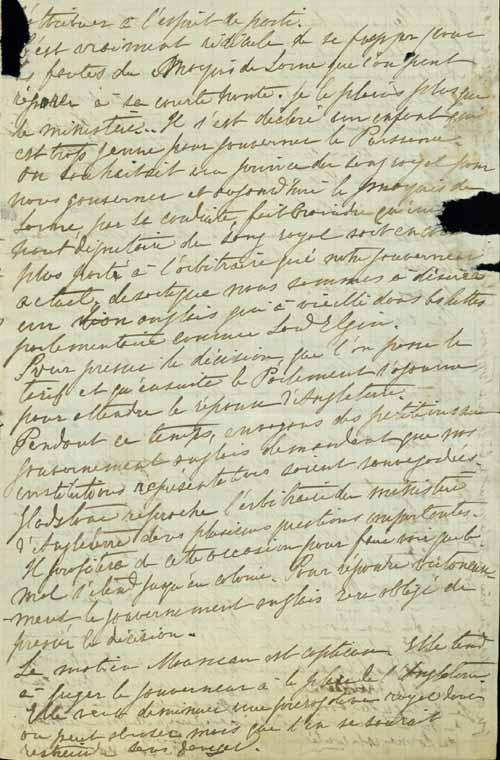 attribuer à l'esprit de parti.
est vraiment ridicule de se frapper pour
fautes du Marquis de Lorne que l'on peut
réparer à sa courte honte. Je le plains plus que
le ministère... Il s'est déclaré un enfant qui
est trop jeune pour gouverner la Puissance.
On souhaitait un prince du sang royal pour
nous gouverner et aujourd'hui le Marquis de
Lorne par sa conduite fait craindre qu'un
haut dignitaire du sang royal soit encore
plus porté à l'arbitraire que notre gouverneur
actuel, de sorte que nous sommes à désirer
un lion anglais qui a vieilli dans les luttes
parlementaires comme Lord Elgin.
Pour presser la décision, que l'on passe le
tarif et qu'ensuite le Parlement s'ajourne
pour attendre la réponse d'Angleterre.
Pendant ce temps, envoyons des petitions au
gouvernement anglais demandant que nos
constitutions représentatives soient sauvegardées.
Gladstone reproche l'arbitraire du ministère
d'Angleterre dans plusieurs questions importantes.
Il profitera de cette occasion pour faire voir que le
mal s'étend jusqu'en colonie. Pour répondre
-ment le gouvernement anglais sera obligé de
presser la décision.
La motion Mousseau est captieuse. Elle tend
à juger le gouverneur à la place de l'Angleterre.
Elle veut diminuer une prérogative royale dont
on peut abuser mais que l'on ne saurait
restreindre sans danger.